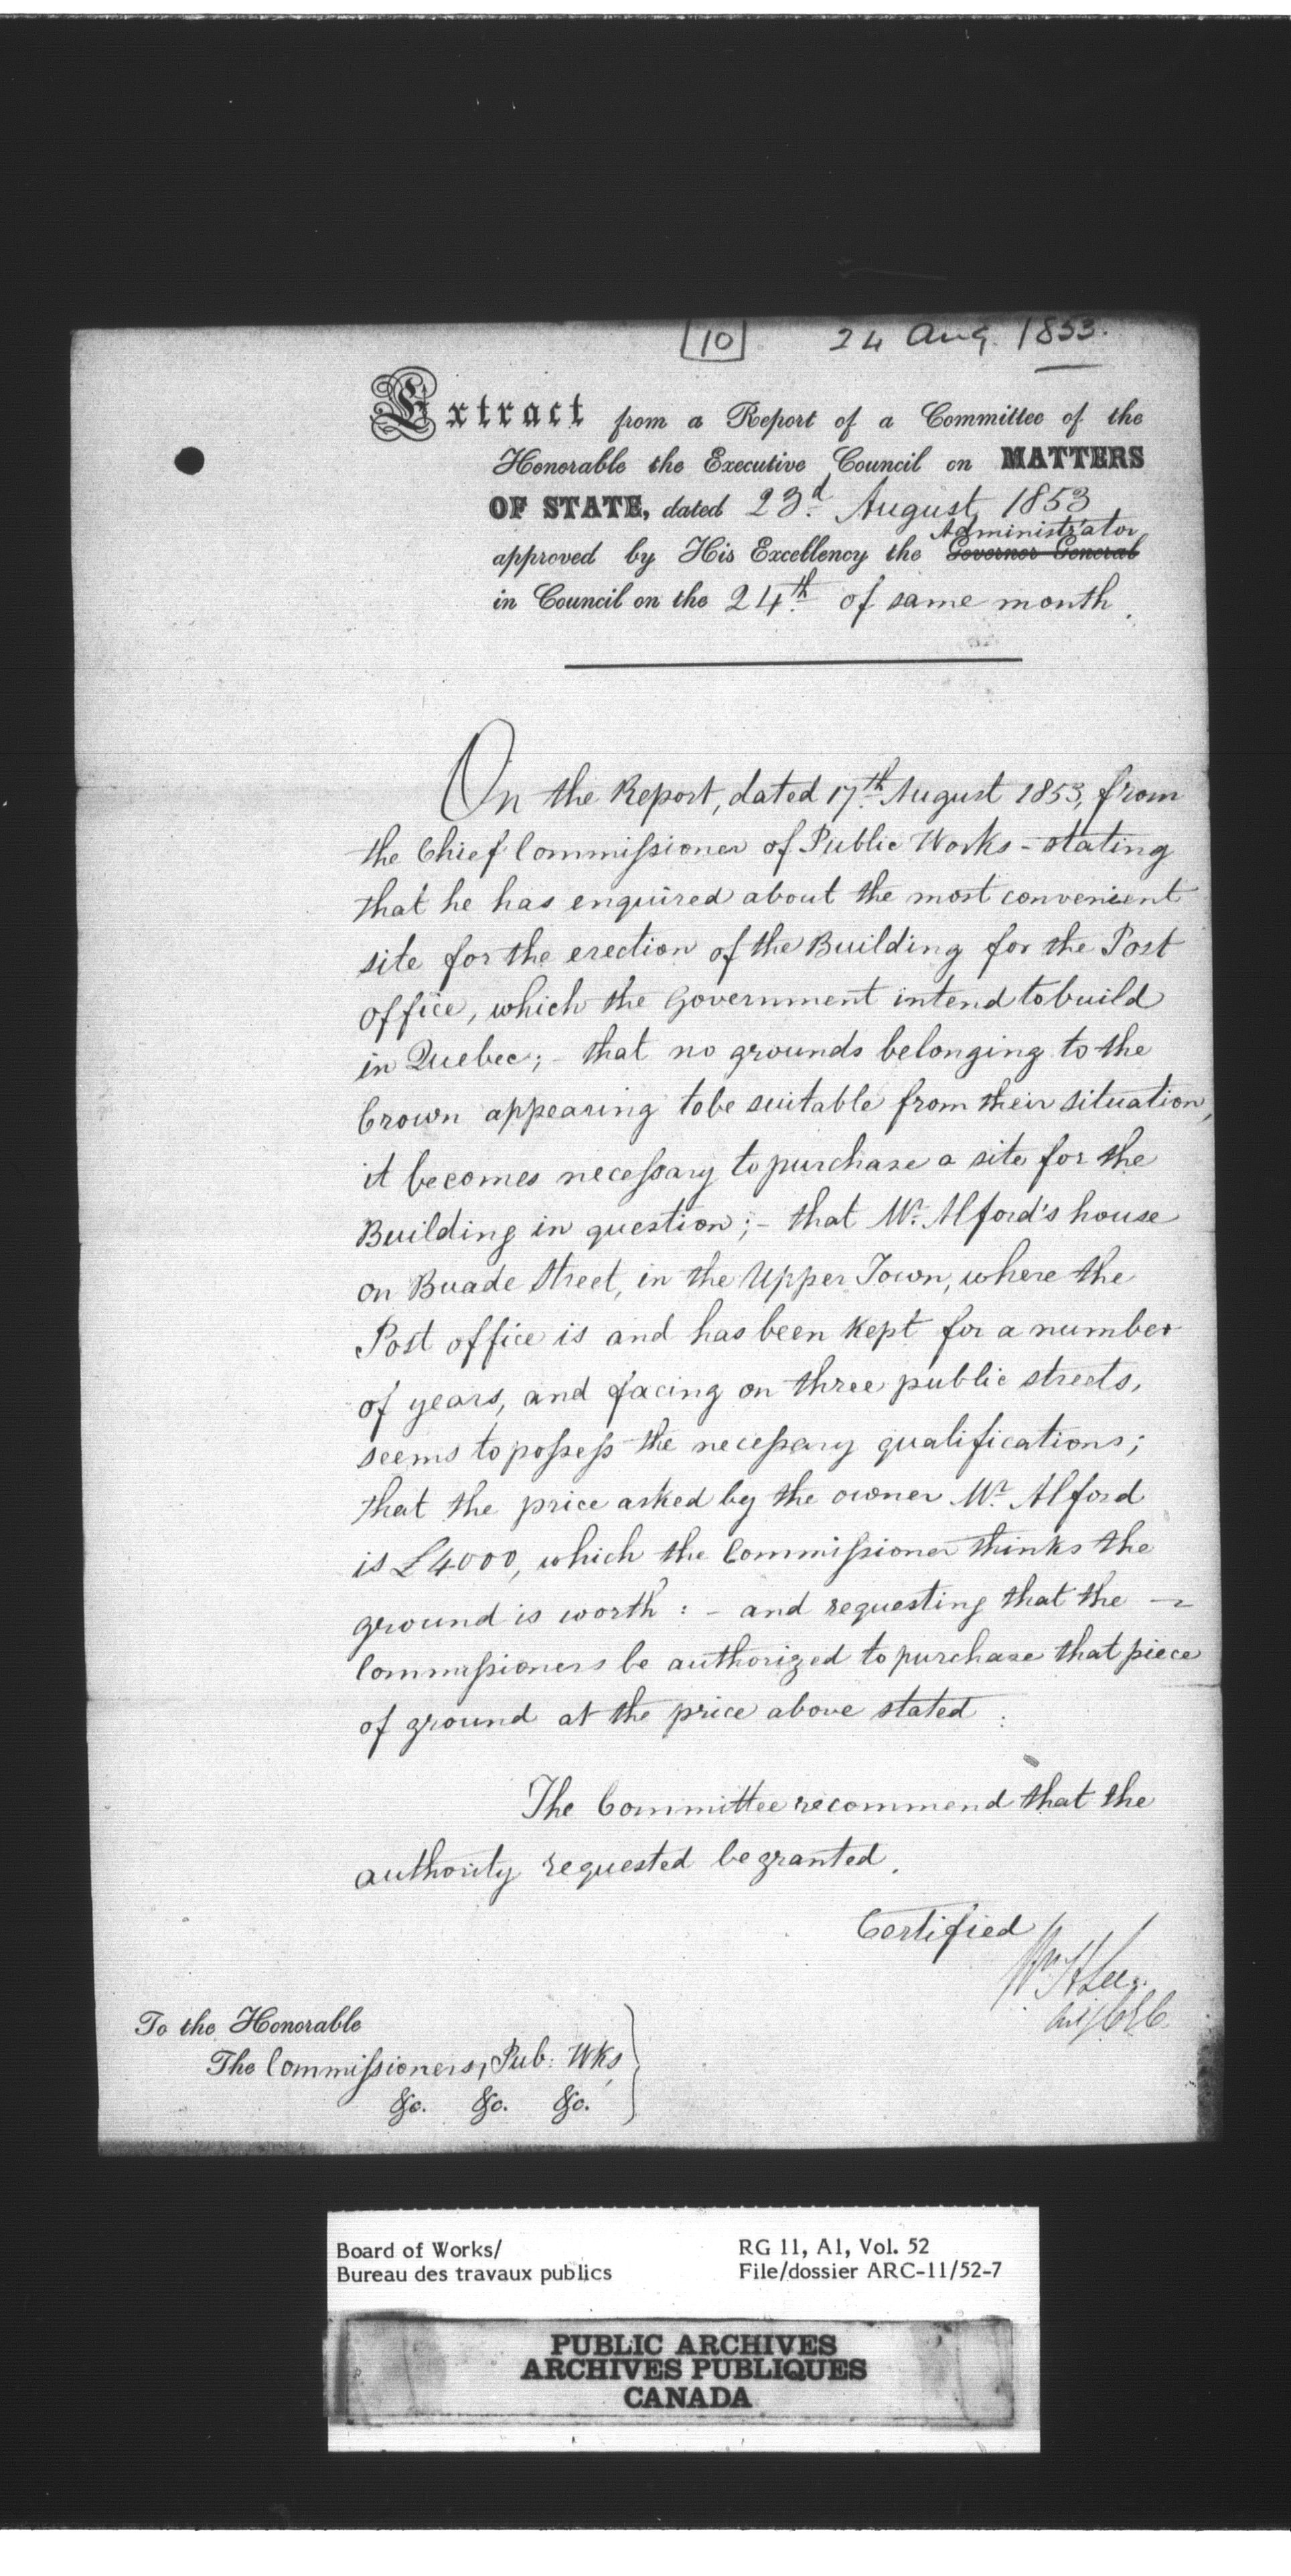 10 24 Aug. 1853.
Extract from a Report of a Committee of the
Honorable the Executive Council on MATTERS
OF STATE, dated 23d August 1853
Administrator
approved by His Excellency the Governor General
in Council on the 24th of same month.
On the Report, dated 17th August 1853, from
the Chief Commissioner of Public Works - stating
that he has enquired about the most convenient
site for the erection of the Building for the Post
office, which the Government intend to build
in Quebec; - that no grounds belonging to the
Crown appearing to be suitable from their situation,
it becomes necessary to purchase a site for the
Building in question; - that Mr. Alford's house
on Buade Street, in the Upper Town, where the
Post office is and has been kept for a number
of years, and facing on three public streets,
seems to possess the necessary qualifications;
that the price asked by the owner Mr. Alford
is £4000, which the Commissioner thinks the
ground is worth : - and requesting that the -
Commissioners be authorized to purchase that piece
of ground at the price above stated :
The Committee recommend that the
authority requested be granted.
Certified
Wm H Lee
C.E.C.
To the Honorable
The Commissioners, Pub: Wks,
&c. &c. &c.
Board of Works/
Bureau des travaux publics
RG 11, A1, Vol. 52
File/dossier ARC-11/52-7
PUBLIC ARCHIVES
ARCHIVES PUBLIQUES
CANADA